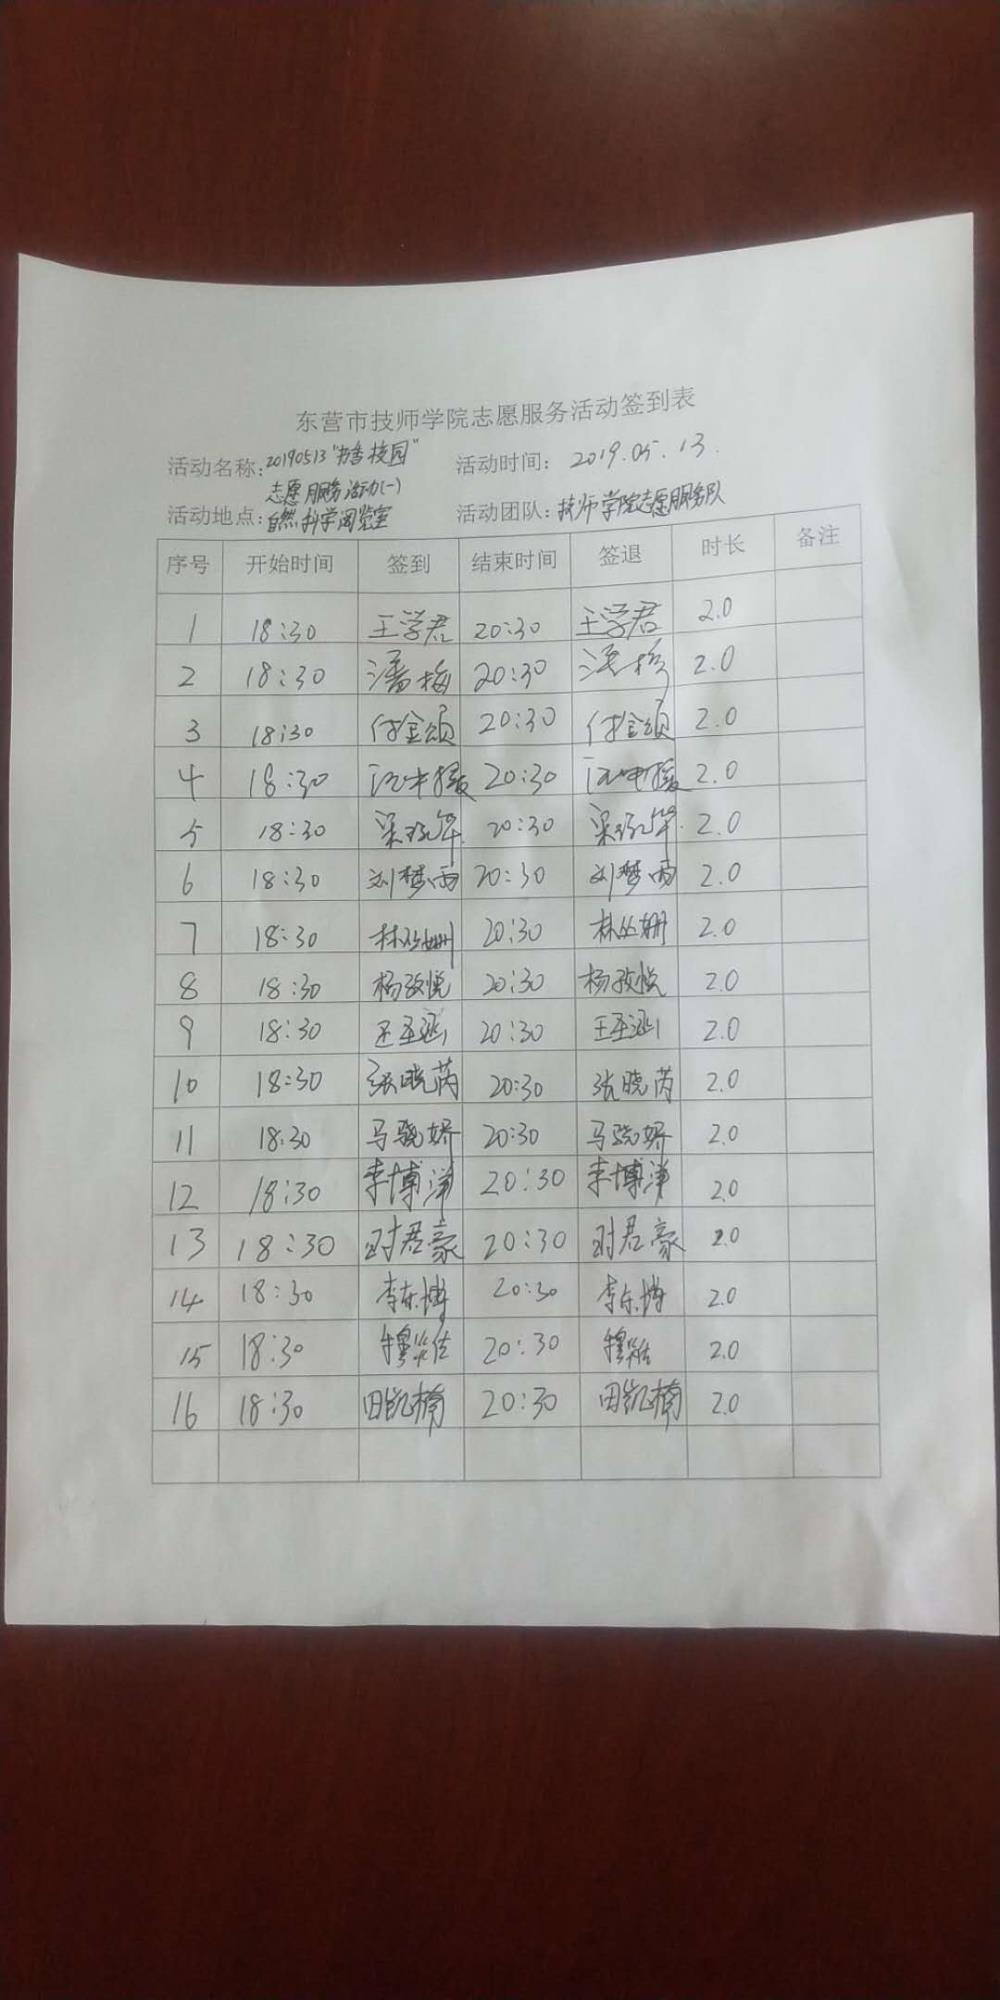 东营市技师学院志愿服务活动签到表
活动名称: 20190513"书香校园" 活动时间: 2019.05.13.
志愿服务活动(一)
活动地点: 自然科学阅览室 活动团队: 技师学院志愿服务队
序号 开始时间 签到 结束时间 签退 时长 备注
1 18:30 王学君 20:30 王学君 2.0
2 18:30 潘梅 20:30 潘梅 2.0
3 18:30 付金颂 20:30 付金颂 2.0
4 18:30 20:30 2.0
5 18:30 20:30 2.0
6 18:30 刘梦雨 20:30 刘梦雨 2.0
7 18:30 林丛姗 20:30 林丛姗 2.0
8 18:30 杨孜悦 20:30 杨孜悦 2.0
9 18:30 王圣涵 20:30 王圣涵 2.0
10 18:30 张晓芮 20:30 张晓芮 2.0
11 18:30 马骁娇 20:30 马骁娇 2.0
12 18:30 李博洋 20:30 李博洋 2.0
13 18:30 君豪 20:30 君豪 2.0
14 18:30 李东博 20:30 李东博 2.0
15 18:30 20:30 2.0
16 18:30 田凯楠 20:30 田凯楠 2.0